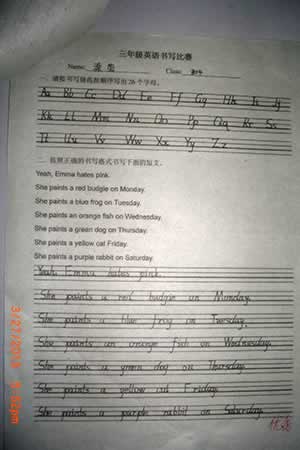 三年级英语书写比赛
Name: Class:
一、请按书写格式顺序写出26个字母。
Aa Bb Cc Dd Ee Ff Gg Hh Ii Jj
Kk Ll Mm Nn Oo Pp Qq Rr Ss
Tt Uu Vv Ww Xx Yy Zz
二、按照正确的书写格式书写下面的短文。
Yeah, Emma hates pink.
She paints a red budgie on Monday.
She paints a blue frog on Tuesday.
She paints an orange fish on Wednesday.
She paints a green dog on Thursday.
She paints a yellow cat Friday.
She paints a purple rabbit on Saturday.
Yeah, Emma hates pink.
She paints a red budgie on Monday.
She paints a blue frog on Tuesday.
She paints an orange fish on Wednesday.
She paints a green dog on Thursday.
She paints a yellow cat Friday.
She paints a purple rabbit on Saturday.